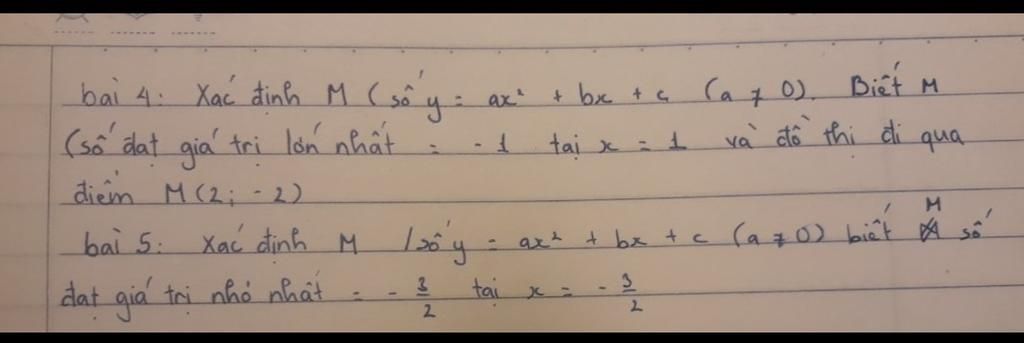 bài 4: Xác định M (số y = ax² + bx + c (a ≠ 0). Biết M
(số đạt giá trị lớn nhất = - 1 tại x = 1 và đồ thi đi qua
điểm M(2; -2)
bài 5: Xác định M /số y = ax² + bx + c (a ≠ 0) biết M số
đạt giá trị nhỏ nhất = - 3/2 tại x = - 3/2